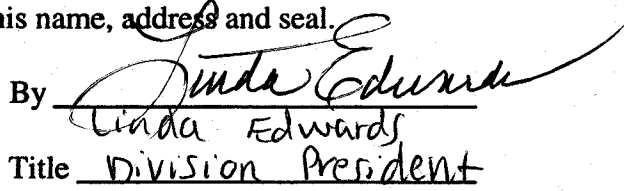 his name, address and seal.
By Linda Edwards
Linda Edwards
Title Division President